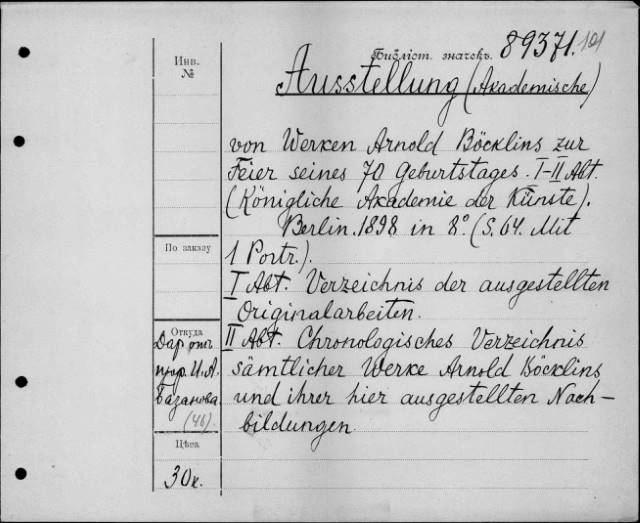 Библіот. значекъ. 89371. 101
Инв.
№
Ausstellung (Akademische)
von Werken Arnold Böcklins zur
Feier seines 70 Geburtstages. I-II Abt.
(Königliche Akademie der Künste).
Berlin. 1898 in 8° (S. 64. Mit
По заказу
1 Portr.).
I Abt. Verzeichnis der ausgestellten
Originalarbeiten.
Откуда
II Abt. Chronologisches Verzeichnis
Дар отъ
проф. И. А.
sämtlicher Werke Arnold Böcklins
Базанова.
und ihrer hier ausgestellten Nach-
(46)
bildungen.
Цѣна
30к.